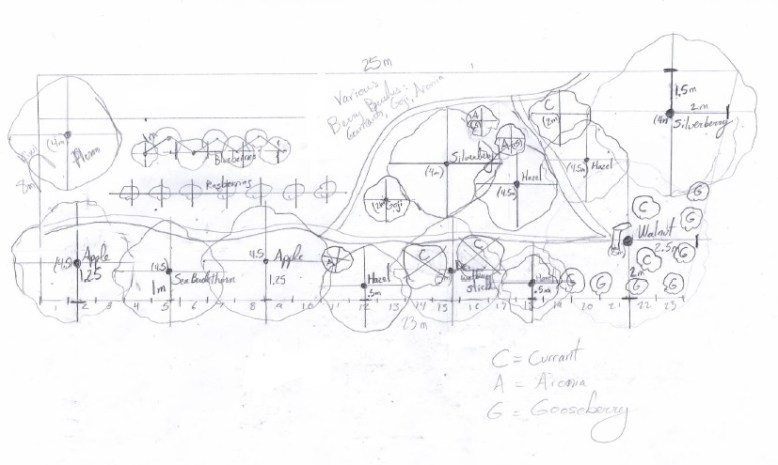 25 m
Various
Berry Bushes:
Currants, Goji, Aronia
1.5m
2m
(4m) Silverberry
C
(2m)
A
A
(4m)
Plum
8m
1m
Blueberries
Raspberries
Silverberry
(4m)
Hazel
(4.5m)
Hazel
(4.5m)
Goji
G
C
G
Walnut
2.5m
2m
C
(4.5) Apple
1.25
(4.5)
Sea Buckthorn
1m
4.5 Apple
1.25
A
Hazel
.5m
C
C
.5m
G
G
G
G
G
1 2 3 4 5 6 7 8 9 10 11 12 13 14 15 16 17 18 19 20 21 22 23
23 m
C = Currant
A = Aronia
G = Gooseberry